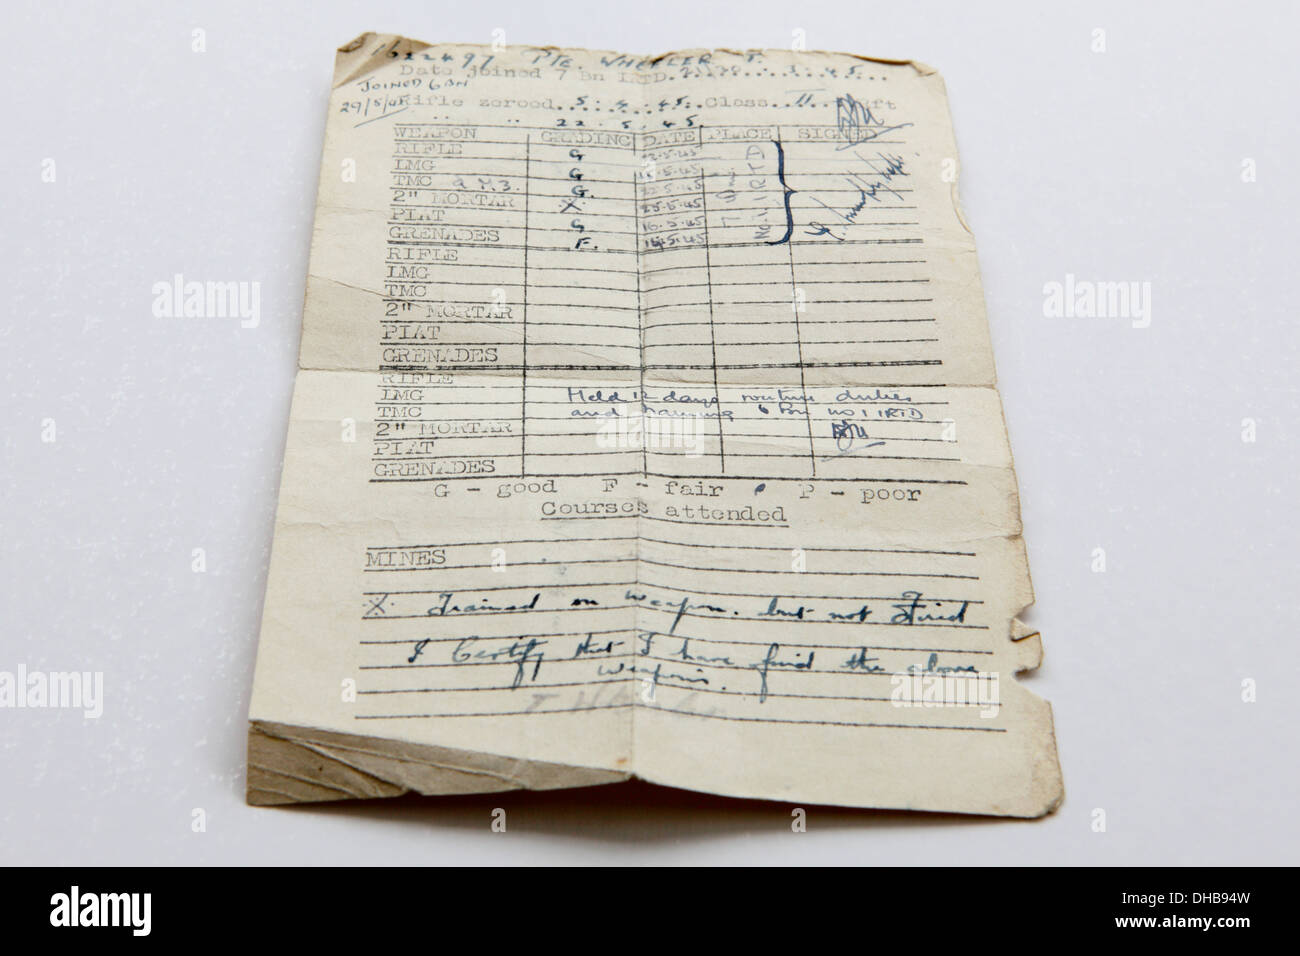 PTE. WHEELER T.
Date joined 7 Bn IRTD. . 3 . 45 . . .
JOINED 6 BN
29/5/45
Rifle zeroed . . 5 . 4 . 45 . Class . . II . .
" " . . 22 . 5 . 45
WEAPON GRADING DATE PLACE SIGNED
RIFLE G 22.5.45
LMG G .5.45
TMC & M3. G. 22.5.45
2" MORTAR X 25.5.45
PIAT G 16.5.45
GRENADES F. 14.5.45
7 No. 1 IRTD
RIFLE
LMG
TMC
2" MORTAR
PIAT
GRENADES
RIFLE
LMG Held 12 days routine duties
TMC and training 6 Bn No 1 IRTD
2" MORTAR
PIAT
GRENADES
G - good F - fair P - poor
Courses attended
MINES
X. Trained on weapon. but not Fired
I Certify that I have fired the above
weapons.
T Wheeler
alamy
Image ID: DHB94W
www.alamy.com